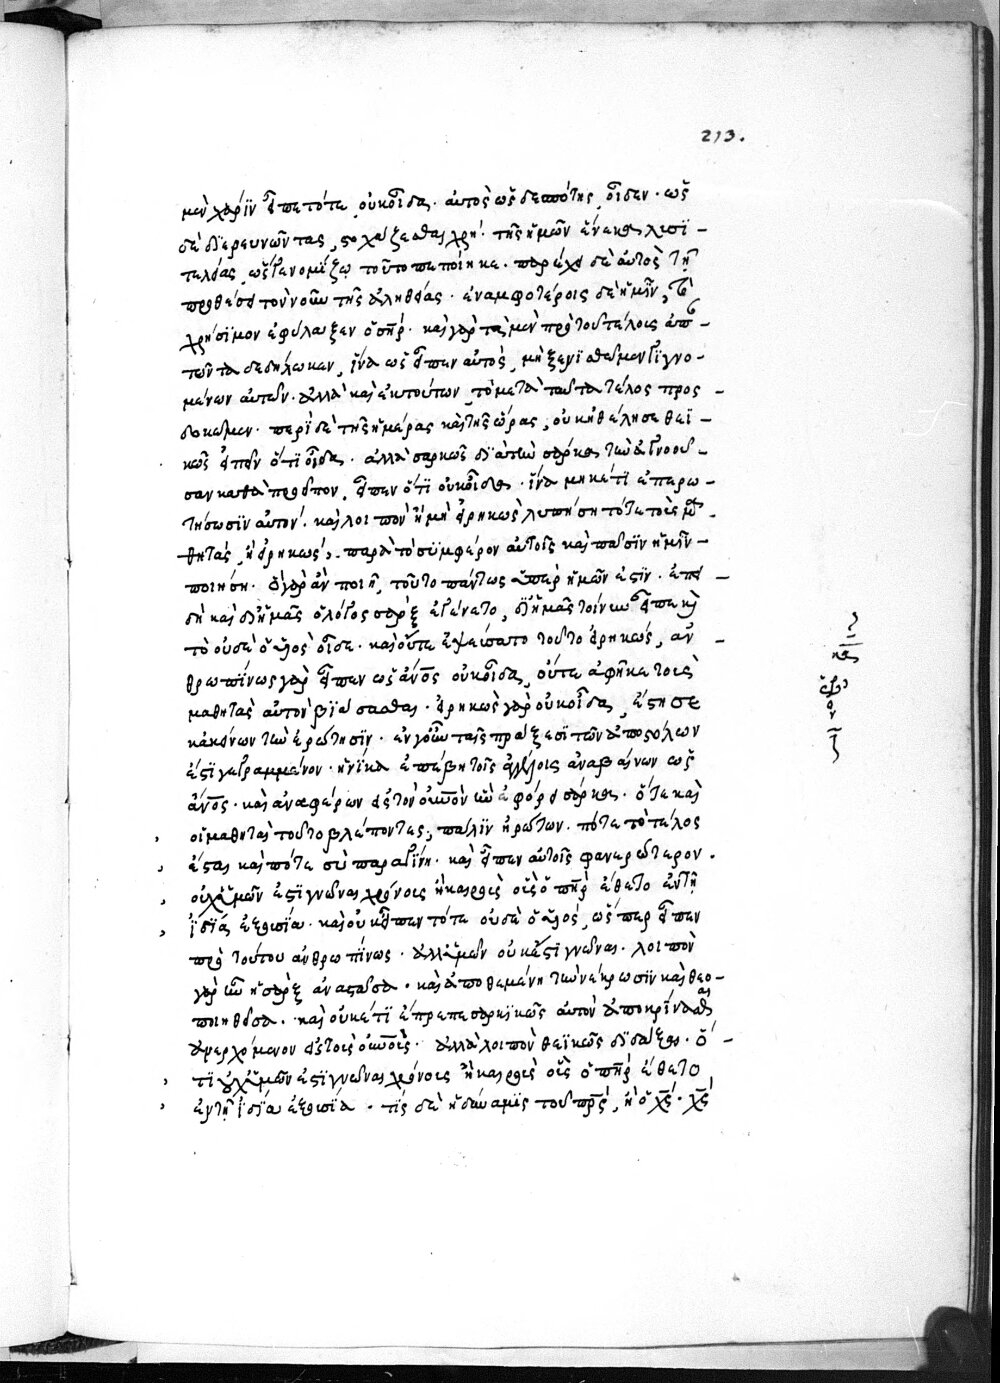 213.
μὲν χάριν εἶπε τότε οὐκ οἶδα. αὐτὸς ὡς δεσπότης οἶδεν. ὡς
δὲ διερευνῶντας, στοχάζεσθαι χρή. τῆς ἡμῶν ἕνεκα λυσι-
τελείας, ὡς ἔγωγε νομίζω τοῦτο πεποίηκε. παρέχει δὲ αὐτὸς τῇ
προθέσει τὸν νοῦν τῆς ἀληθείας. ἐν ἀμφοτέροις δὲ ἡμῖν, τὸ
χρήσιμον ἐφύλαξεν ὁ σηρ. καὶ γὰρ τὰ μὲν πρὸ τοῦ τέλους ἀπ-
τῶντα δεδήλωκεν, ἵνα ὡς εἶπεν αὐτὸς, μὴ ξενισθῶμεν γιγνο-
μένων αὐτῶν. ἀλλὰ καὶ ἐκ τούτων, τὸ μετὰ ταῦτα τέλος προς
δοκῶμεν. περὶ δὲ τῆς ἡμέρας καὶ τῆς ὥρας, οὐκ ἠθέλησε θεϊ-
κῶς εἰπεῖν ὅτι οἶδα. ἀλλὰ σαρκῶς διὰ τὴν σάρκα τὴν ἀγνοοῦ-
σαν καθὰ προεῖπον, εἶπεν ὅτι οὐκ οἶδα. ἵνα μηκέτι ἐπερω-
τήσωσιν αὐτόν. καὶ λοιπὸν ἢ μὴ εἰρηκὼς λυπήσῃ τότε τοὺς μα
θητὰς, ἢ εἰρηκώς, παρὰ τὸ συμφέρον αὐτοῖς καὶ πᾶσιν ἡμῖν
ποιήσῃ. ὃ γὰρ ἂν ποιῇ, τοῦτο πάντως ὑπὲρ ἡμῶν ἐστίν. ἐπει-
δὴ καὶ δι' ἡμᾶς ὁ λόγος σὰρξ ἐγένετο, δι' ἡμᾶς τοίνυν εἶπε καὶ
τὸ οὐδὲ ὁ υἱὸς οἶδε. καὶ οὔτε ἐψεύσατο τοῦτο εἰρηκώς, ἀν-
θρωπίνως γὰρ εἶπεν ὡς ἄνος οὐκ οἶδα, οὔτε ἀφῆκε τοὺς
μαθητὰς αὐτὸν βιάσασθαι. εἰρηκὼς γὰρ οὐκ οἶδα, ἔστησε
κἀκείνων τὴν ἐρώτησιν. ἐν γοῦν ταῖς πράξεσι τῶν ἀποστόλων
ἐστὶ γεγραμμένον. ἡνίκα ἐπέβη τοῖς ἀγγέλοις ἀναβαίνων ὡς
ἄνος. καὶ ἀναφέρων εἰς τὸν οὐνὸν ἣν ἐφόρει σάρκα. ὅτε καὶ
οἱ μαθηταὶ τοῦτο βλέποντες, πάλιν ἠρώτων. πότε τὸ τέλος
ἔσται καὶ πότε σὺ παραγίνῃ. καὶ εἶπεν αὐτοῖς φανερώτερον.
οὐχ ὑμῶν ἐστὶ γνῶναι χρόνους ἢ καιροὺς οὓς ὁ πηρ ἔθετο ἐν τῇ
ἰδίᾳ ἐξουσίᾳ. καὶ οὐκ εἶπεν τότε οὐδὲ ὁ υἱός, ὥσπερ εἶπεν
πρὸ τούτου ἀνθρωπίνως. ἀλλ' ὑμῶν οὐκ ἔστι γνῶναι. λοιπὸν
γὰρ ἦν ἡ σὰρξ ἀναστᾶσα. καὶ ἀποθεμένη τὴν νέκρωσιν καὶ θεο-
ποιηθεῖσα. καὶ οὐκέτι ἔπρεπε σαρκικῶς αὐτὸν ἀποκρίνασθαι
ἀνερχόμενον εἰς τοὺς οὐνούς. ἀλλὰ λοιπὸν θεϊκῶς διδάξαι. ὅ-
τι οὐχ ὑμῶν ἐστὶ γνῶναι χρόνους ἢ καιροὺς οὓς ὁ πηρ ἔθετο
ἐν τῇ ἰδίᾳ ἐξουσίᾳ. τίς δὲ ἡ δύναμις τοῦ πρς, ἢ ὁ χς. χς